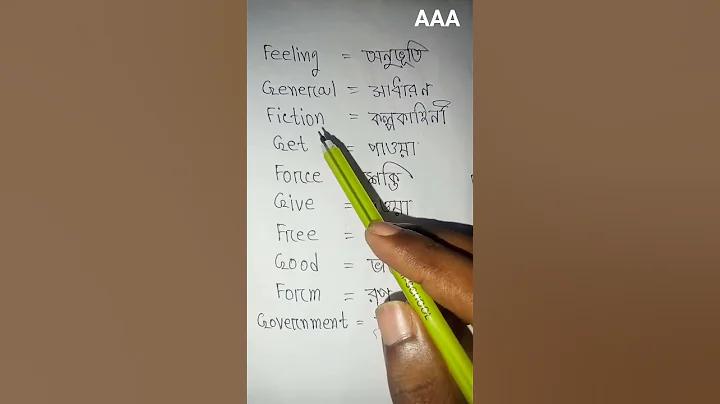 AAA
Feeling = অনুভূতি
General = সাধারন
Fiction = কল্পকাহিনী
Get = পাওয়া
Force = শক্তি
Give =
Free =
Good =
Form =
Government =